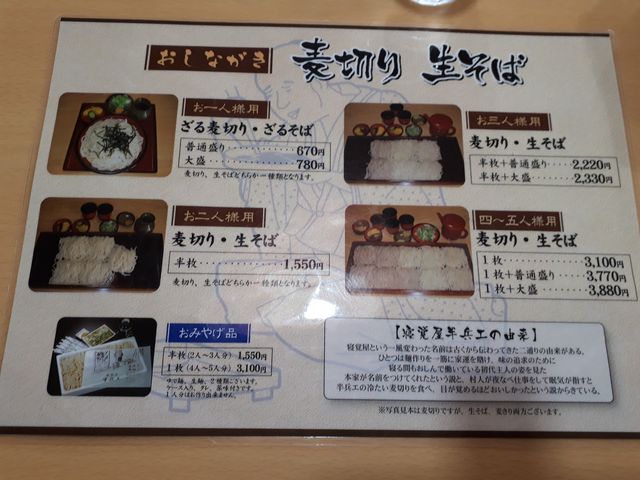 おしながき
麦切り 生そば
お一人様用
ざる麦切り・ざるそば
普通盛り‥‥‥‥670円
大盛‥‥‥‥780円
麦切り、生そばどちらか一種類となります。
お二人様用
麦切り・生そば
半枚‥‥‥‥1,550円
麦切り、生そばどちらか一種類となります。
おみやげ品
半枚(2人〜3人分) 1,550円
1枚(4人〜5人分) 3,100円
ゆで麺、生麺、2種類ございます。
ケース入り、タレ、薬味付きです。
1人分はお作り出来ません。
お三人様用
麦切り・生そば
半枚+普通盛り‥‥‥2,220円
半枚+大盛‥‥‥‥2,330円
四〜五人様用
麦切り・生そば
1枚‥‥‥‥3,100円
1枚+普通盛り‥‥‥3,770円
1枚+大盛‥‥‥‥3,880円
【寝覚屋半兵エの由来】
寝覚屋という一風変わった名前は古くから伝わってきた二通りの由来がある。
ひとつは麺作りを一筋に家運を賭け、味の追求のために
寝る間もおしんで働いている初代主人の姿を見た
本家が名前をつけてくれたという説と、村人が夜なべ仕事をして眠気が指すと
半兵エの冷たい麦切りを食べ、目が覚めるほどおいしかったという説からきている。
※写真見本は麦切りですが、生そば、麦きり両方ございます。